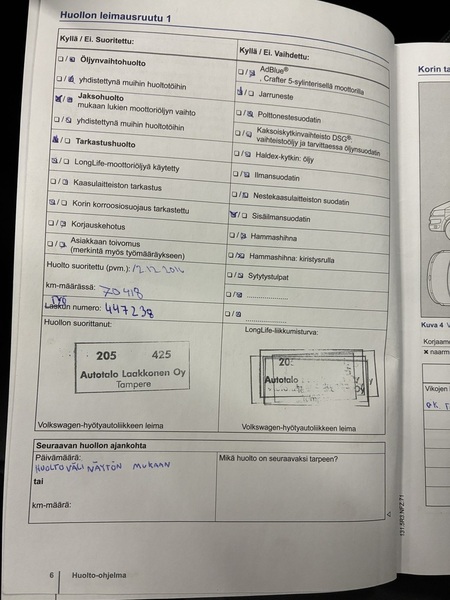 Huollon leimausruutu 1
Kyllä / Ei. Suoritettu:
Öljynvaihtohuolto
yhdistettynä muihin huoltotöihin
Jaksohuolto
mukaan lukien moottoriöljyn vaihto
yhdistettynä muihin huoltotöihin
Tarkastushuolto
LongLife-moottoriöljyä käytetty
Kaasulaitteiston tarkastus
Korin korroosiosuojaus tarkastettu
Korjauskehotus
Asiakkaan toivomus
(merkintä myös työmääräykseen)
Huolto suoritettu (pvm.): 12.12.2016
km-määrässä: 70418
Laskun numero: 447238
Huollon suorittanut:
205 425
Autotalo Laakkonen Oy
Tampere
Volkswagen-hyötyautoliikkeen leima
Kyllä / Ei. Vaihdettu:
AdBlue®
, Crafter 5-sylinterisellä moottorilla
Jarruneste
Polttonestesuodatin
Kaksoiskytkinvaihteisto DSG®:
vaihteistoöljy ja tarvittaessa öljynsuodatin
Haldex-kytkin: öljy
Ilmansuodatin
Nestekaasulaitteiston suodatin
Sisäilmansuodatin
Hammashihna
Hammashihna: kiristysrulla
Sytytystulpat
LongLife-liikkumisturva:
20
Autotalo
Volkswagen-hyötyautoliikkeen leima
Seuraavan huollon ajankohta
Päivämäärä:
HUOLTOVÄLI NÄYTÖN MUKAAN
tai
km-määrä:
Mikä huolto on seuraavaksi tarpeen?
6 Huolto-ohjelma
131.5R3.NFZ.71
Korin ta
Kuva 4
Korjaam
naarm
Vikojen
OK